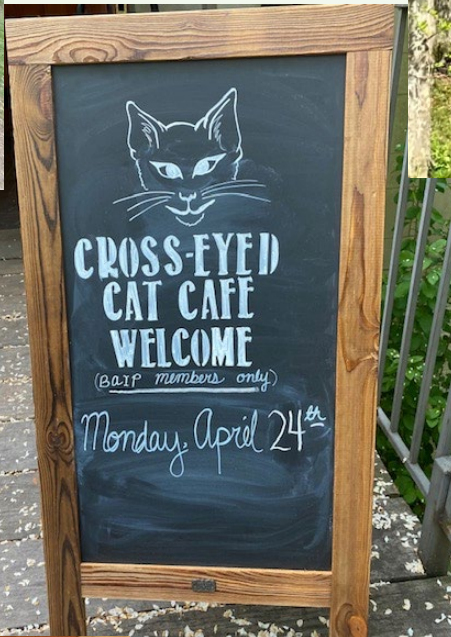 CROSS-EYED
CAT CAFE
WELCOME
(BAIP members only)
Monday, April 24th